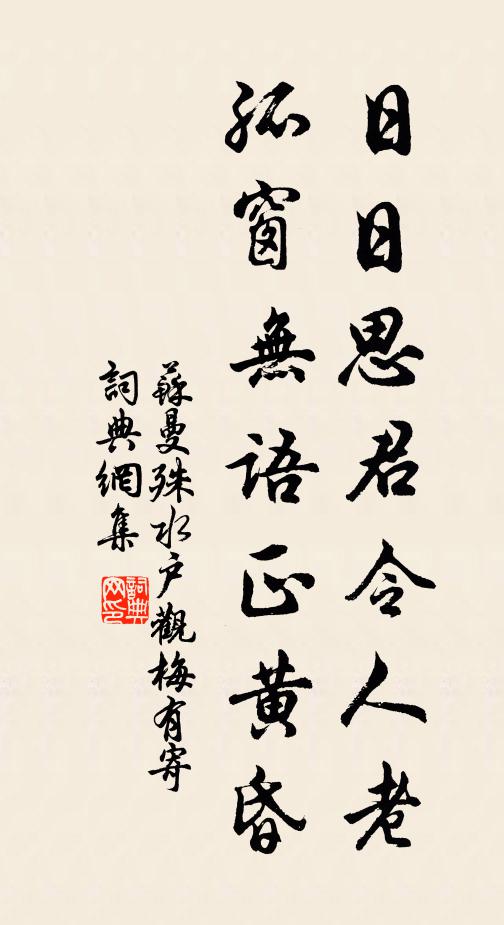 日日思君令人老
孤窗無語正黃昏
蘇曼殊水戶觀梅有寄
詞典網集
詞典網印